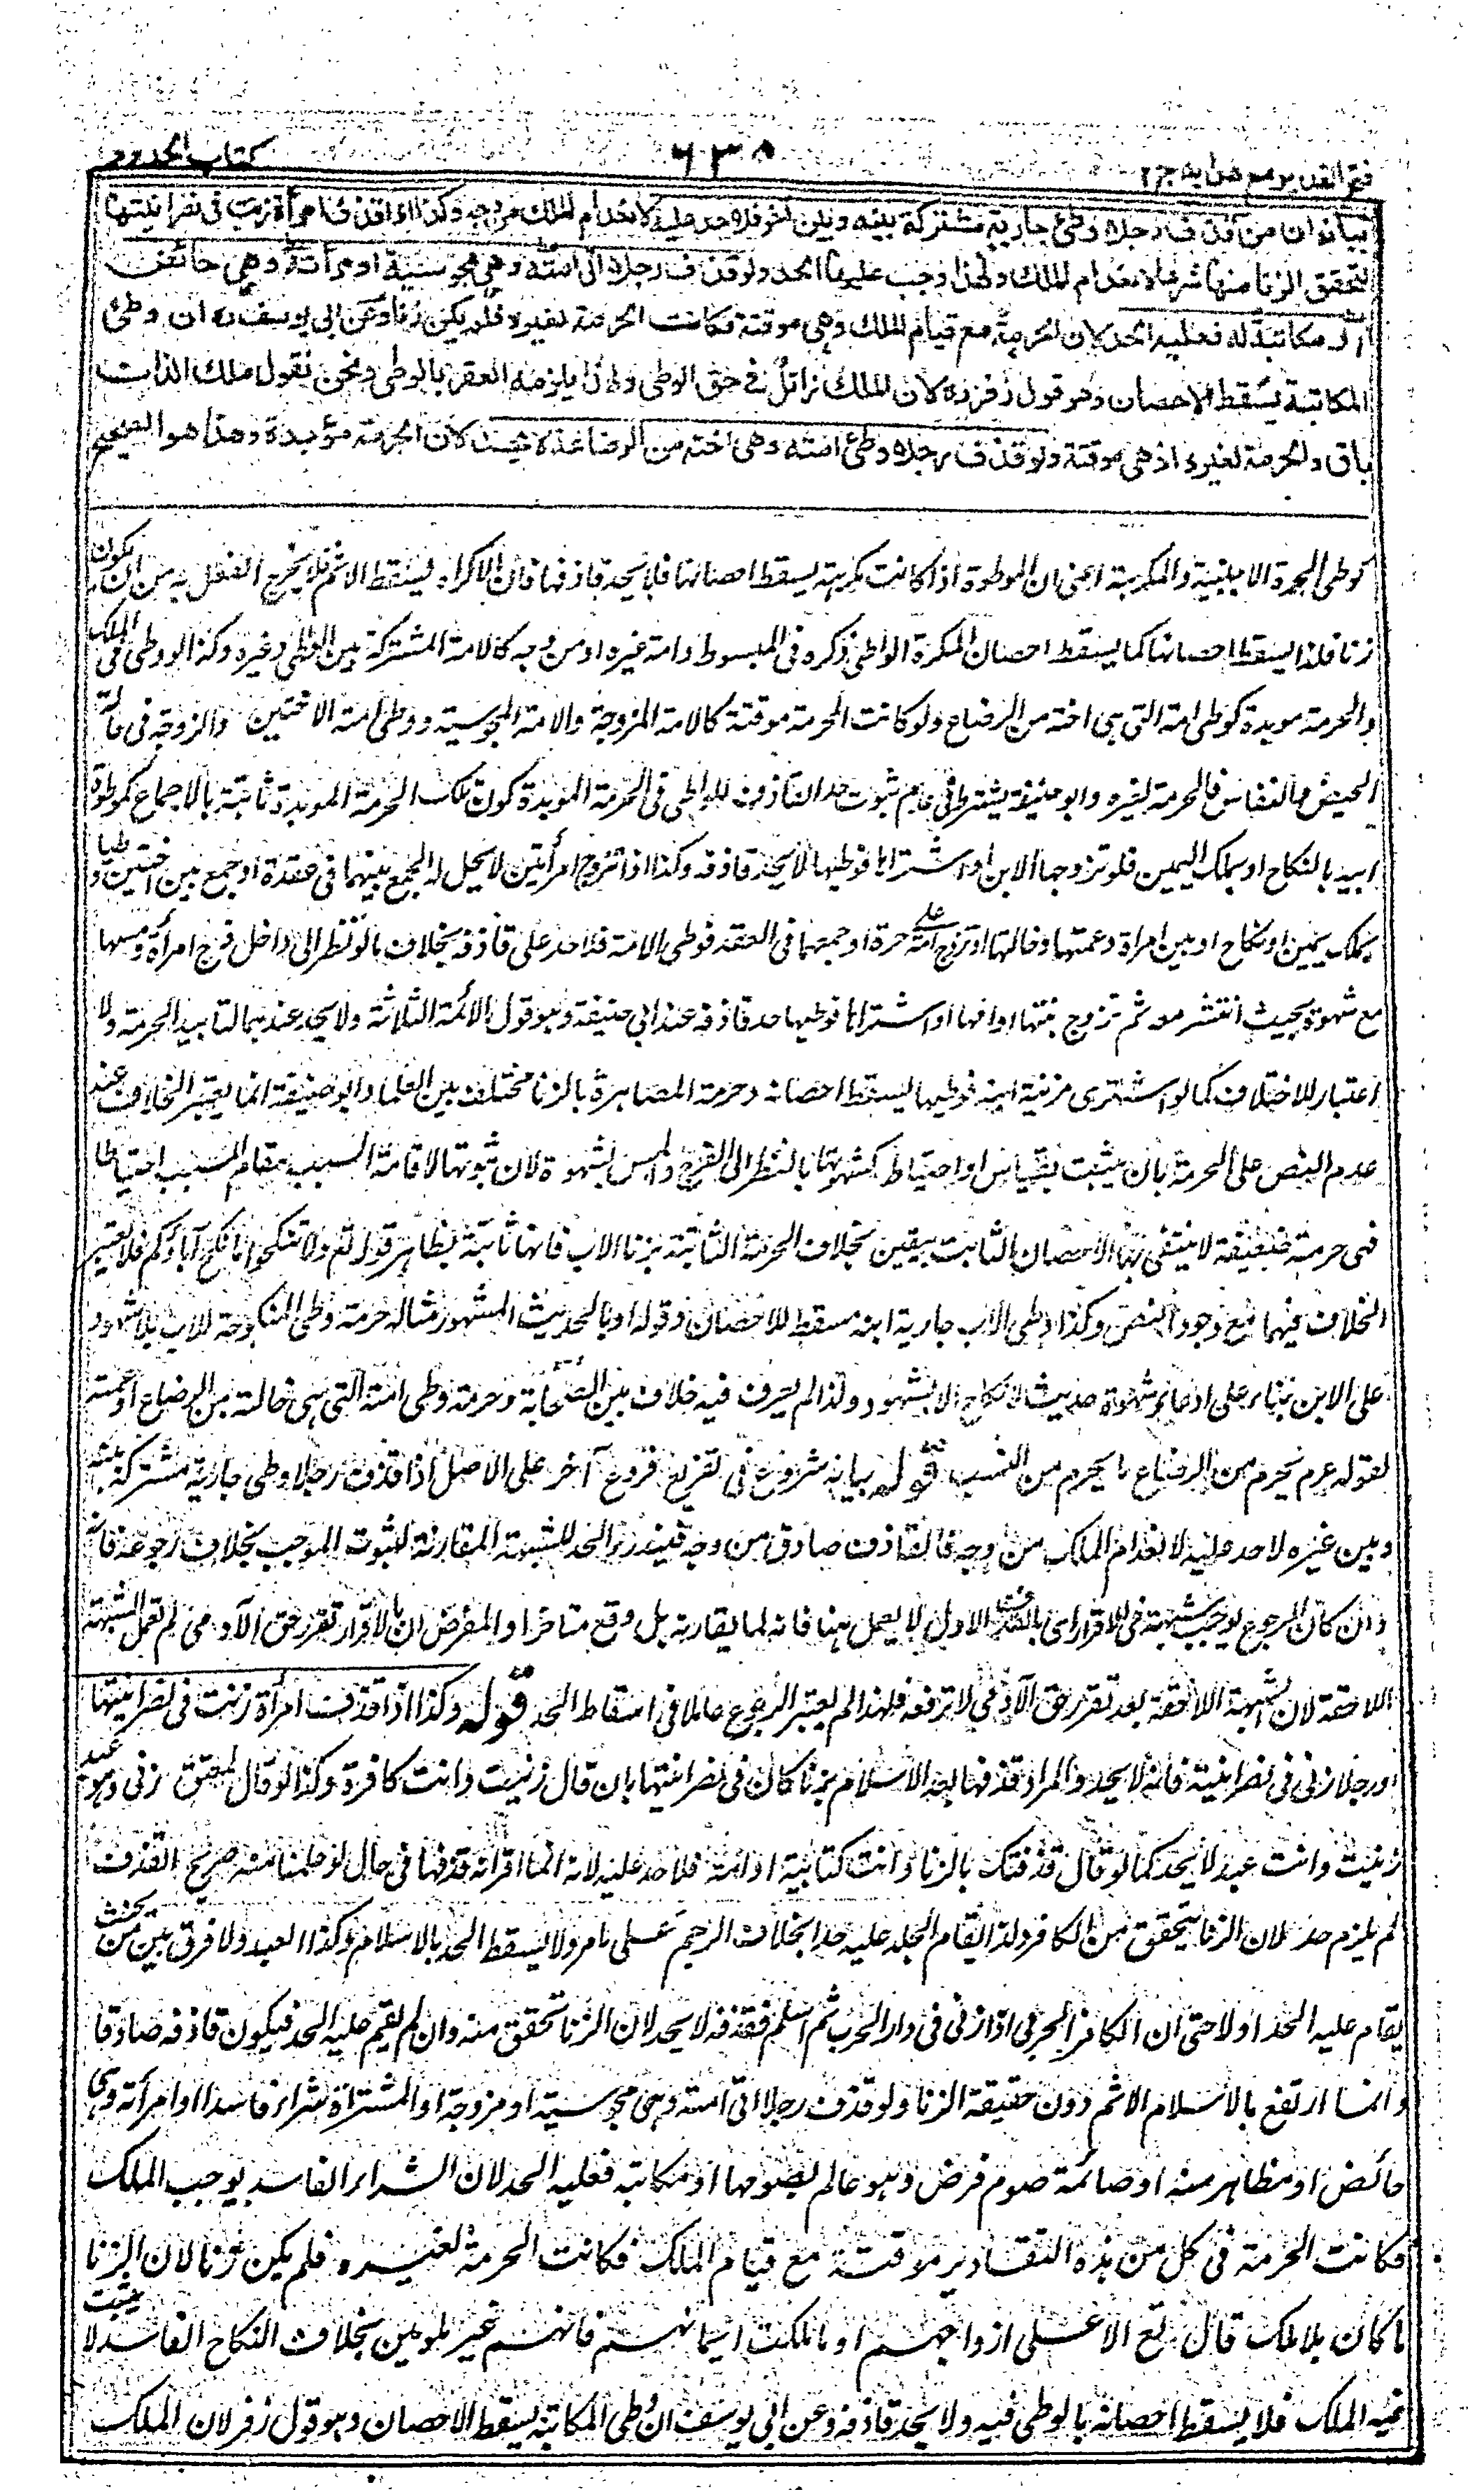 فتح القدير مع هدايه جز ٢
٦٣٥
كتاب الحدود
بيانه ان من قذف رجلا وطئ جارية مشتركة بينه وبين اخر فلا حد عليه لانعدام الملك من وجه وكذا اذا قذف امرأة زنت فى نصرانيتها
لتحقق الزنا منها شرعا لانعدام الملك ولهذا وجب عليها الحد ولو قذف رجلا اتى امته وهى مجوسية او امرأته وهى حائض
او مكاتبة له فعليه الحد لان الحرمة مع قيام الملك وهى موقتة فكانت الحرمة لغيره فلم يكن زنا وعن ابى يوسف ره ان وطئ
المكاتبة يسقط الاحصان وهو قول زفر ره لان الملك زائل فى حق الوطى ولهذا يلزمه العقر بالوطى ونحن نقول ملك الذات
باق والحرمة لغيره اذ هى موقتة ولو قذف رجلا وطئ امته وهى اخته من الرضاعة لا يحد لان الحرمة مؤبدة وهذا هو الصحيح
كوطى الحرة الاجنبية والمكرهة اعنى ان الموطوة اذا كانت مكرهة يسقط احصانها فلا يحد قاذفها فان الاكراه يسقط الاثم فلا يخرج الفعل به من ان يكون
زنا فلذا يسقط احصانها كما يسقط احصان المكره الواطى ذكره فى المبسوط وامة غيره او من وجه كالامة المشتركة بين الواطى وغيره وكذا لو وطى فى الملك
والحرمة مويدة كوطى امته التى هى اخته من الرضاع ولو كانت الحرمة موقتة كالامة المزوجة والامة المجوسية ووطى امته الاختين والزوجة فى حالة
الحيض والنفاس فالحرمة لغيره وابو حنيفة يشترط فى عدم ثبوت حد القاذف للواطى فى الحرمة المويدة كون تلك الحرمة المويدة ثابتة بالاجماع كموطوة
ابيه بالنكاح او بملك اليمين فلو تزوجها الابن او اشتراها فوطيها لا يحد قاذفه وكذا اذا تزوج امرأتين لا يحل له الجمع بينهما فى عقدة او جمع بين اختين وطيا
بملك يمين او نكاح او بين امراة وعمتها وخالتها او تزوج امة على حرة او جمعهما فى العقد فوطى الامة فلا حد على قاذفه بخلاف ما لو نظر الى داخل فرج امرأة ومسها
مع شهوة بحيث انتشر معه ثم تزوج بنتها او امها او اشتراها فوطيها حد قاذفه عند ابى حنيفة وهو قول الائمة الثلاثة ولا يحد عندهما لتابيد الحرمة ولا
اعتبار للاختلاف كما لو اشترى مزنية ابنه فوطيها ليسقط احصانه وحرمة المصاهرة بالزنا مختلف بين العلما وابو حنيفة انما يعتبر الخلاف عند
عدم النص على الحرمة بان يثبت بقياس او احتياط كثبوتها بالنظر الى الفرج والمس بشهوة لان ثبوتها لاقامة السبب مقام المسبب احتياطا
فهى حرمة ضعيفة لا ينتفى بها الاحصان الثابت بيقين بخلاف الحرمة الثابتة بزنا الاب فانها ثابتة بظاهر قوله تع ولا تنكحوا ما نكح آباؤكم فلا يعتبر
الخلاف فيهما مع وجود النص وكذا وطى الاب جارية ابنه مسقط للاحصان وقوله او بالحديث المشهور مثاله حرمة وطى المنكوحة للاب بلا شهود
على الابن بناء على ادعاء شهرة حديث لا نكاح الا بشهود ولذا لم يعرف فيه خلاف بين الصحابة وحرمة وطى امته التى هى خالته من الرضاع او عمته
لقوله عم يحرم من الرضاع ما يحرم من النسب قوله بيانه شروع فى تفريع فروع آخر على الاصل اذا قذف رجلا وطى جارية مشتركة بينه
وبين غيره لا حد عليه لانعدام الملك من وجه فالقاذف صادق من وجه فيندرئ الحد للشبهة المقارنة لثبوت الموجب بخلاف رجوعه فانه
وان كان الرجوع يوجب شبهة فى الاقرار اى بالقذف الاول لا يعمل هنا فانه لما يقارنه بل وقع متاخرا والمفرض ان بالاقرار تقرر حق الآدمى لم تعمل الشبهة
اللاحقة لان الشبهة اللاحقة بعد تقرر حق الآدمى لا ترفعه فلهذا لم يعتبر الرجوع عاملا فى اسقاط الحد قوله وكذا اذا قذفت امرأة زنت فى نصرانيتها
او رجلا زنى فى نصرانيته فانه لا يحد والمراد قذفها بعد الاسلام بزنا كان فى نصرانيتها بان قال زنيت وانت كافرة وكذا لو قال لمعتق زنى وهو عبد
زنيت وانت عبد لا يحد كما لو قال قذفتك بالزنا وانت كتابية او امة فلا حد عليه لانه انما اقرانه قذفها فى حال لو علمنا منه صريح القذف
لم يلزم حد لان الزنا يتحقق من الكافر ولذا يقام الجلد عليه حدا بخلاف الرجم على ما مر ولا يسقط الحد بالاسلام وكذا العبد ولا فرق بين من بحيث
يقام عليه الحد اولا حتى ان الكافر الحربى اذا زنى فى دار الحرب ثم اسلم فقذفه لا يحد لان الزنا تحقق منه وان لم يقم عليه الحد فيكون قاذفه صادقا
وانما ارتفع بالاسلام الاثم دون حقيقة الزنا ولو قذف رجلا اتى امته وهى مجوسية او مزوجة او المشتراة شراء فاسدا او امرأته وهى
حائض او مظاهر منه او صائمة صوم فرض وهو عالم بصومها او مكاتبته فعليه الحد لان الشراء الفاسد يوجب الملك
فكانت الحرمة فى كل من هذه التقادير موقتة مع قيام الملك فكانت الحرمة لغيره فلم يكن زنا لان الزنا
ما كان بلا ملك قال تع الا على ازواجهم او ما ملكت ايمانهم فانهم غير ملومين بخلاف النكاح الفاسد لا يثبت
فيه الملك فلا يسقط احصانه بالوطى فيه ولا يحد قاذفه وعن ابى يوسف ان وطى المكاتبة يسقط الاحصان وهو قول زفر لان الملك